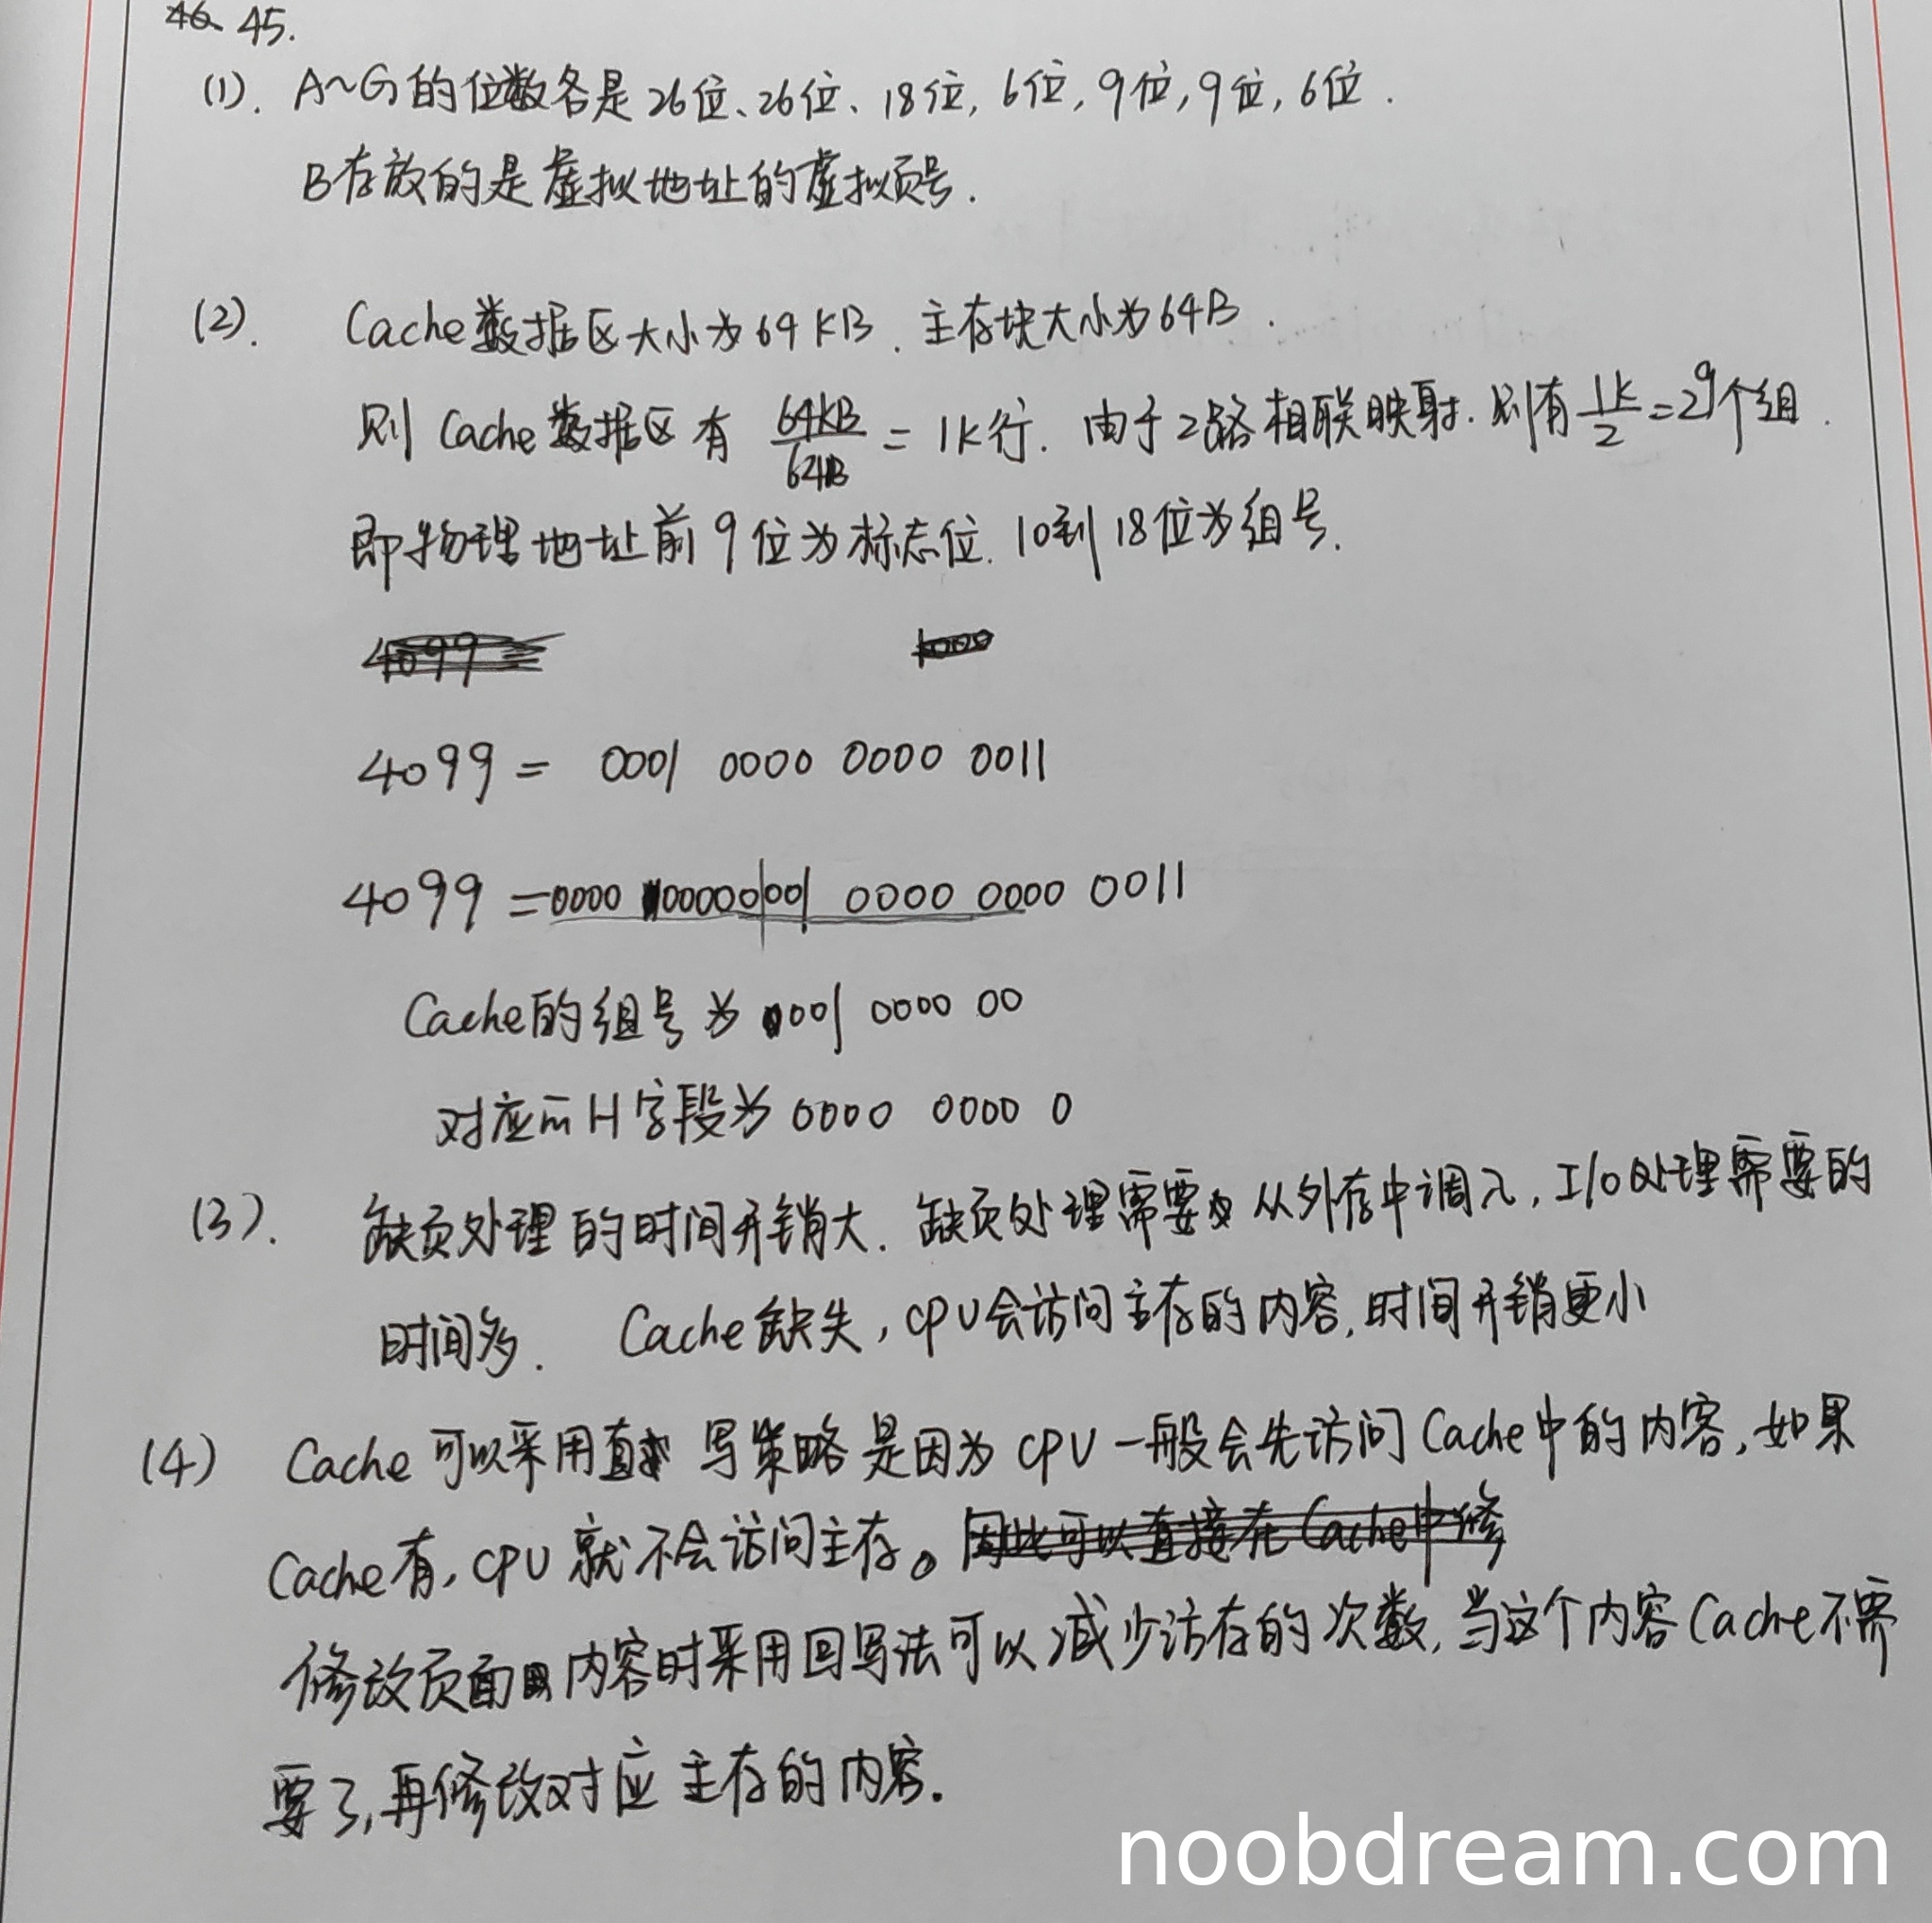 45.
(1). A~G的位数各是26位、26位、18位, 6位, 9位, 9位, 6位.
B存放的是虚拟地址的虚拟页号.
(2). Cache数据区大小为64KB. 主存块大小为64B.
则Cache数据区有 64KB/64B = 1K行. 由于2路相联映射. 则有 1K/2 = 2^9个组.
即物理地址前9位为标志位. 10到18位为组号.
4099 = 0001 0000 0000 0011
4099 = 0000 0000 0001 0000 0000 0011
Cache的组号为 001 0000 00
对应的H字段为0000 0000 0
(3). 缺页处理的时间开销大. 缺页处理需要从外存中调入, I/O处理需要的
时间多. Cache缺失, CPU会访问主存的内容, 时间开销更小
(4) Cache可以采用直写策略是因为CPU一般会先访问Cache中的内容, 如果
Cache有, CPU就不会访问主存。
修改页面内容时采用回写法可以减少访存的次数, 当这个内容Cache不需
要了, 再修改对应主存的内容.
noobdream.com